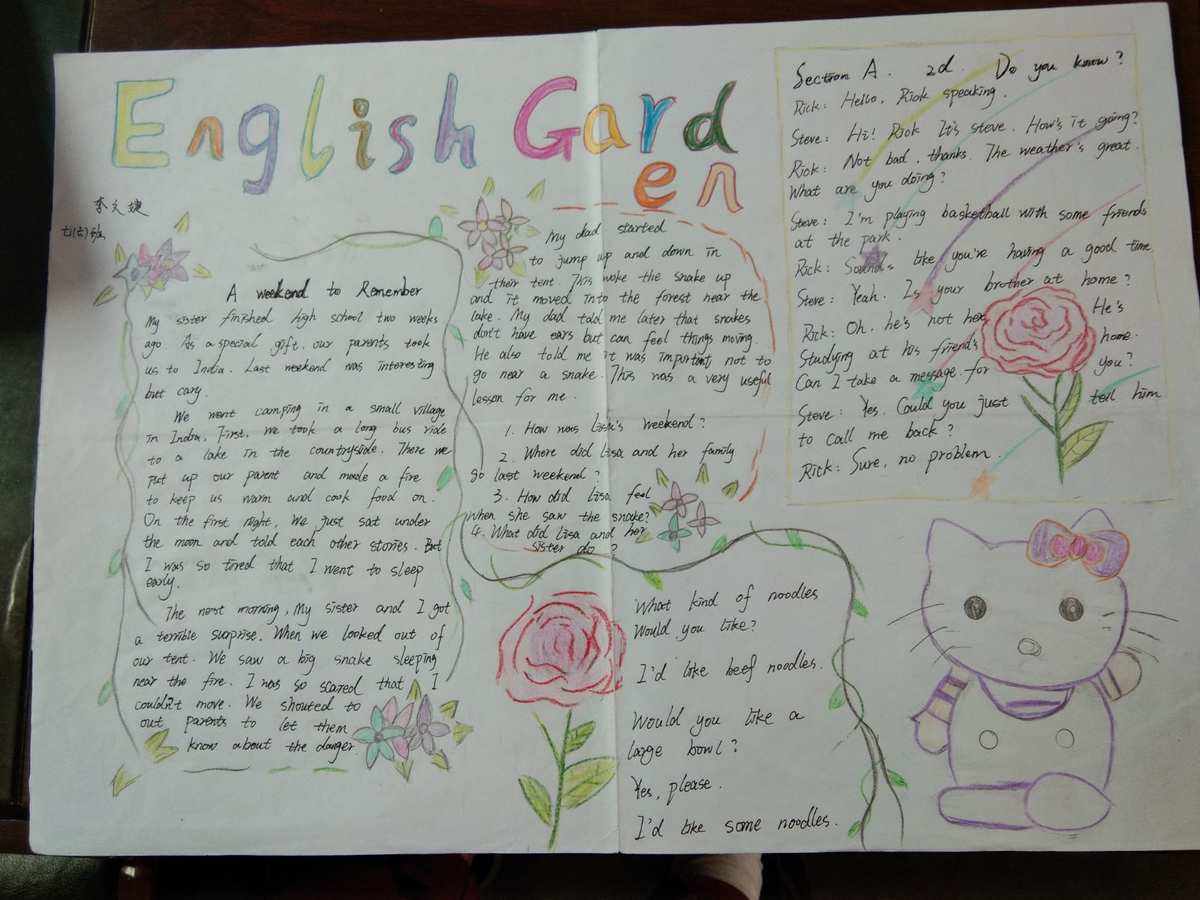 English Gard
en
李文捷
七(七)班
A weekend to Remember
My sister finished high school two weeks
ago. As a special gift. our parents took
us to India. Last weekend was interesting
but cary.
We went camping in a small village
in India, First, we took a long bus ride
to a lake in the countryside. There we
put up our parent and made a fire
to keep us warm and cook food on.
On the first night, We just sat under
the moon and told each other stories. But
I was so tired that I went to sleep
early.
The next morning, My sister and I got
a terrible surprise. When we looked out of
our tent. We saw a big snake sleeping
near the fire. I was so scared that I
couldn't move. We shouted to
out parents to let them
know about the danger.
My dad started
to jump up and down in
their tent. This woke the snake up
and it moved into the forest near the
lake. My dad told me later that snakes
don't have ears but can feel things moving.
He also told me it was important not to
go near a snake. This was a very useful
lesson for me.
1. How was Lisa's weekend?
2. Where did Lisa and her family
go last weekend?
3. How did Lisa feel
when she saw the snake?
4. What did Lisa and her
sister do?
Section A. 2d. Do you know?
Rick: Hello, Rick speaking.
Steve: Hi! Rick It's steve. How's it going?
Rick: Not bad, thanks. The weather's great.
What are you doing?
Steve: I'm playing basketball with some friends
at the park.
Rick: Sounds like you're having a good time.
Steve: Yeah. Is your brother at home?
Rick: Oh, he's not here He's
Studying at his friend's home.
Can I take a message for you?
Steve: Yes. Could you just tell him
to call me back?
Rick: Sure, no problem.
What kind of noodles
Would you like?
I'd like beef noodles.
Would you like a
large bowl?
Yes, please.
I'd like some noodles.